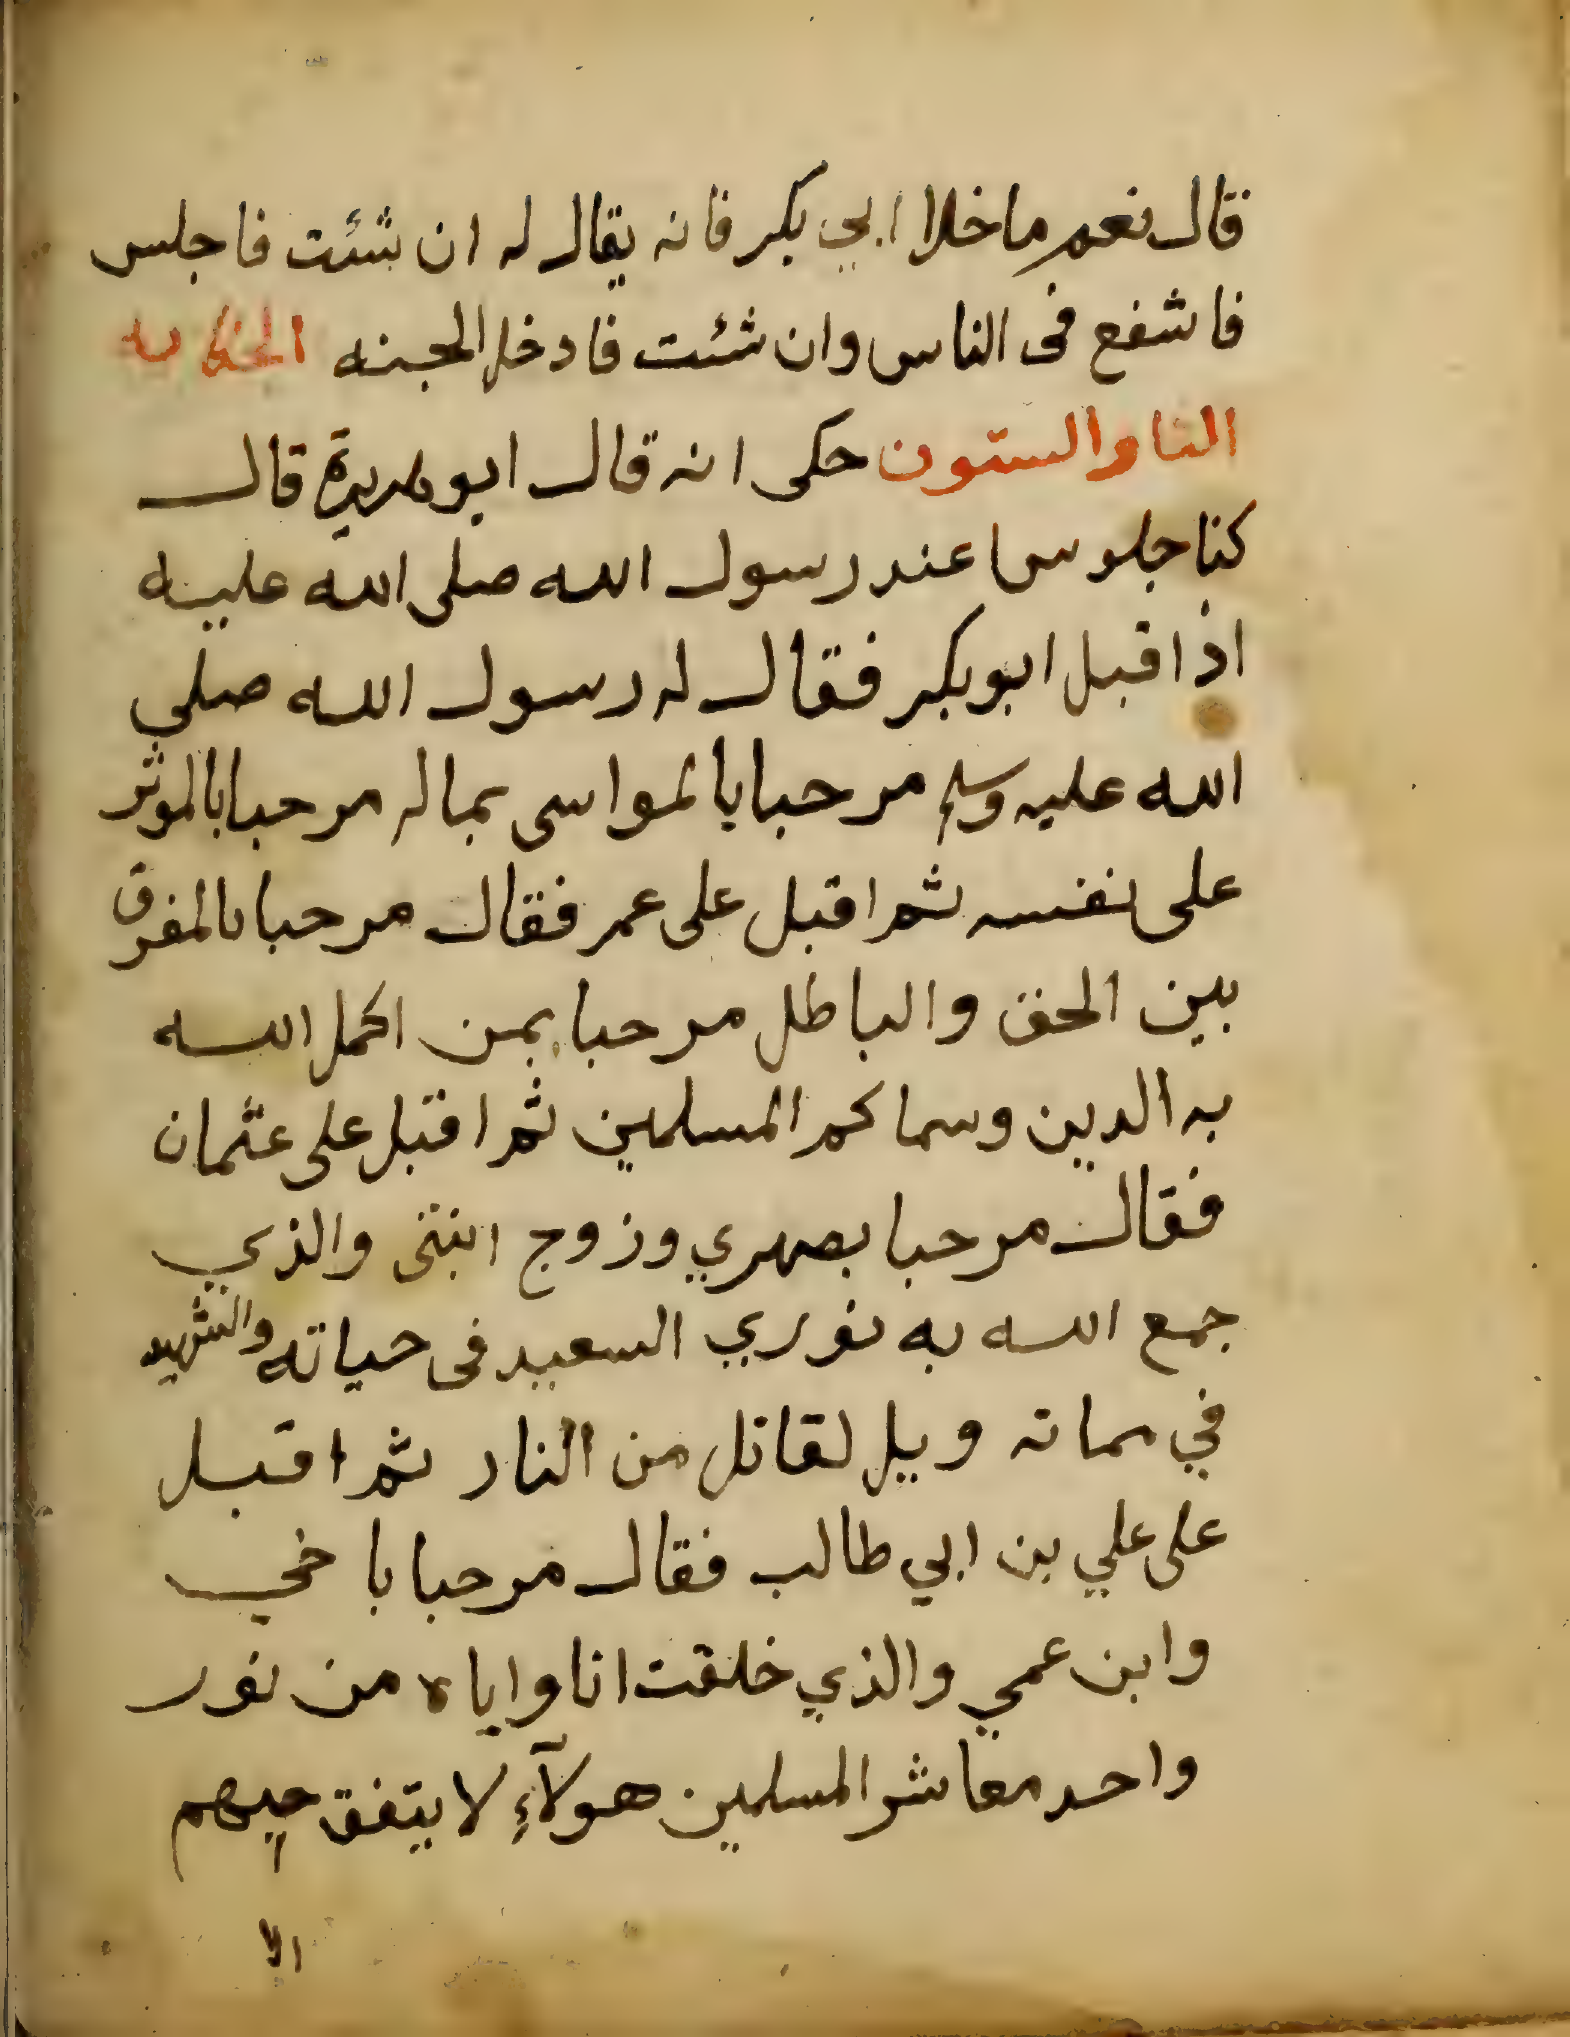 قال نعم ما خلا ابي بكر فانه يقال له ان شئت فاجلس
فاشفع فى الناس وان شئت فادخل الجنه الحكايه
والستون حكى انه قال ابو هريرة قال
كنا جلوسا عند رسول الله صلى الله عليه
اذ اقبل ابو بكر فقال له رسول الله صلي
الله عليه وسلم مرحبا بالمواسى بماله مرحبا بالموثر
على نفسه ثم اقبل على عمر فقال مرحبا بالمفرق
بين الحق والباطل مرحبا بمن اكمل الله
به الدين وسماكم المسلمين ثم اقبل على عثمان
فقال مرحبا بصهري وزوج ابنتى والذي
جمع الله به نوري السعيد فى حياته والشهيد
في مماته ويل لقاتل من النار ثم اقبل
على علي بن ابي طالب فقال مرحبا باخي
وابن عمي والذي خلقت انا واياه من نور
واحد معاشر المسلمين هولآء لا يتفق حبهم
الا